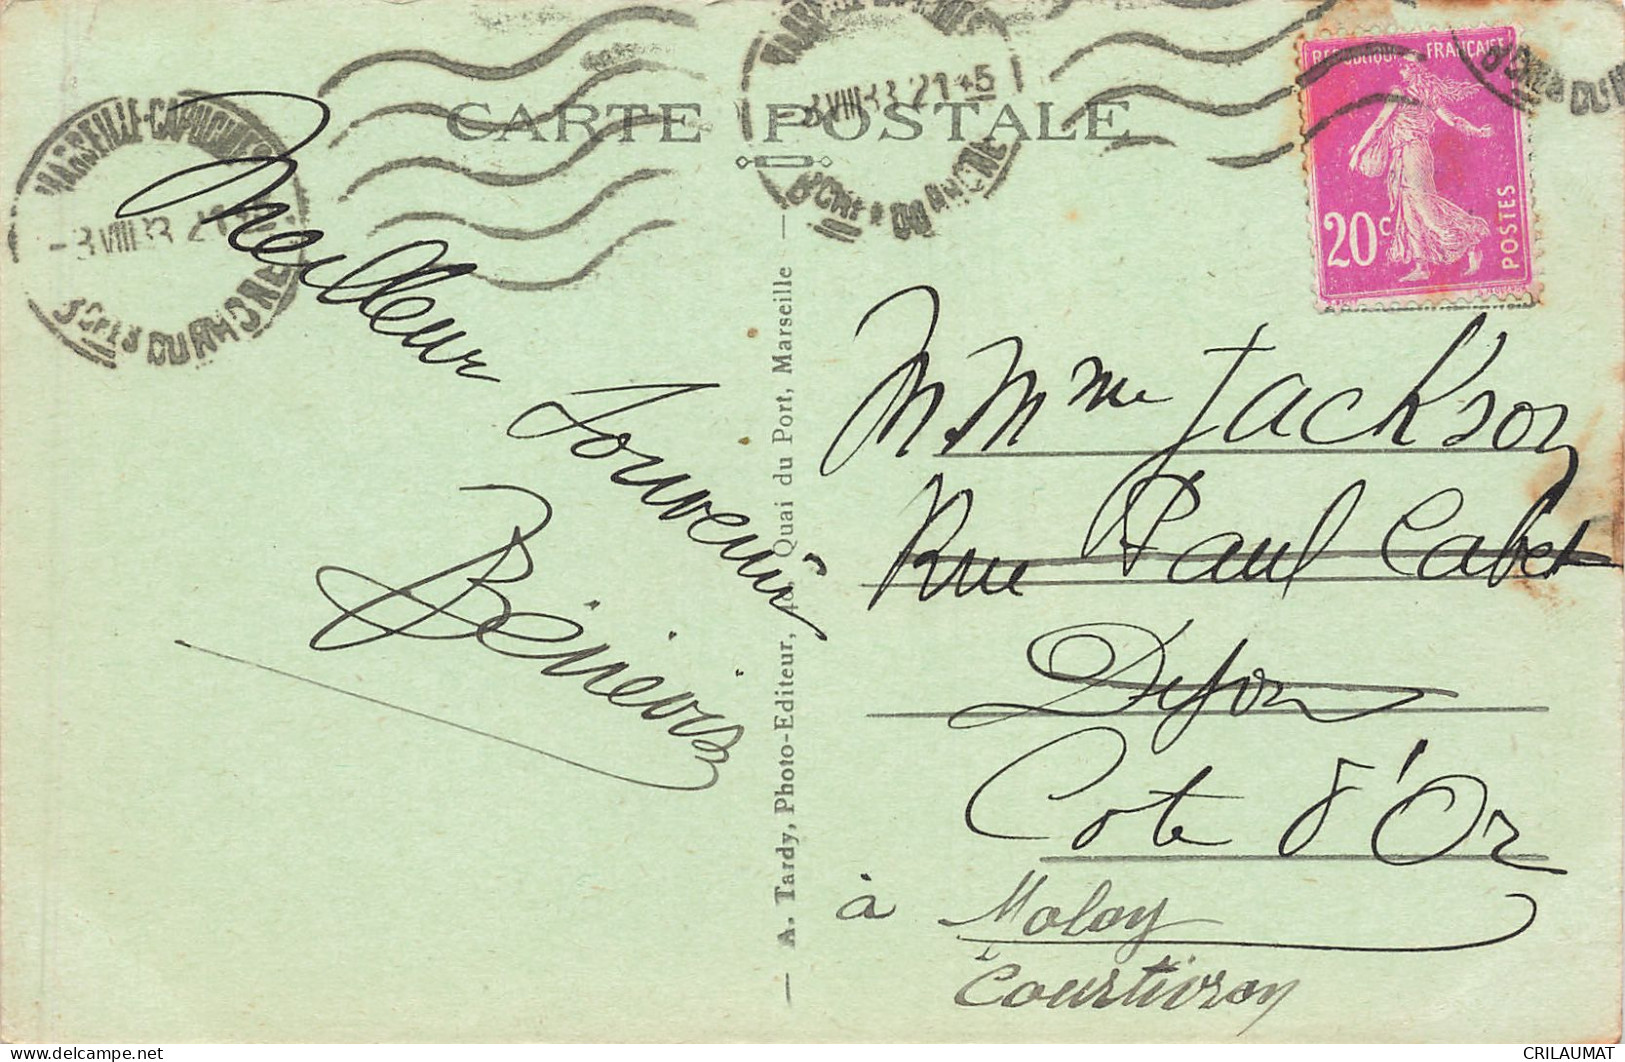 CARTE POSTALE
MARSEILLE-CAPUCINES
-3 VIII 33 21
BCHES DU RHONE
3 VIII 33 21 45
BCHES DU RHONE
REPUBLIQUE FRANCAISE
20c
POSTES
Meilleur Souvenir
A. Tardy, Photo-Editeur, Quai du Port, Marseille
M Mme Jackson
Rue Paul Cabet
Dijon
Cote d'Or
à Moloy
Courtivron
CRILAUMAT